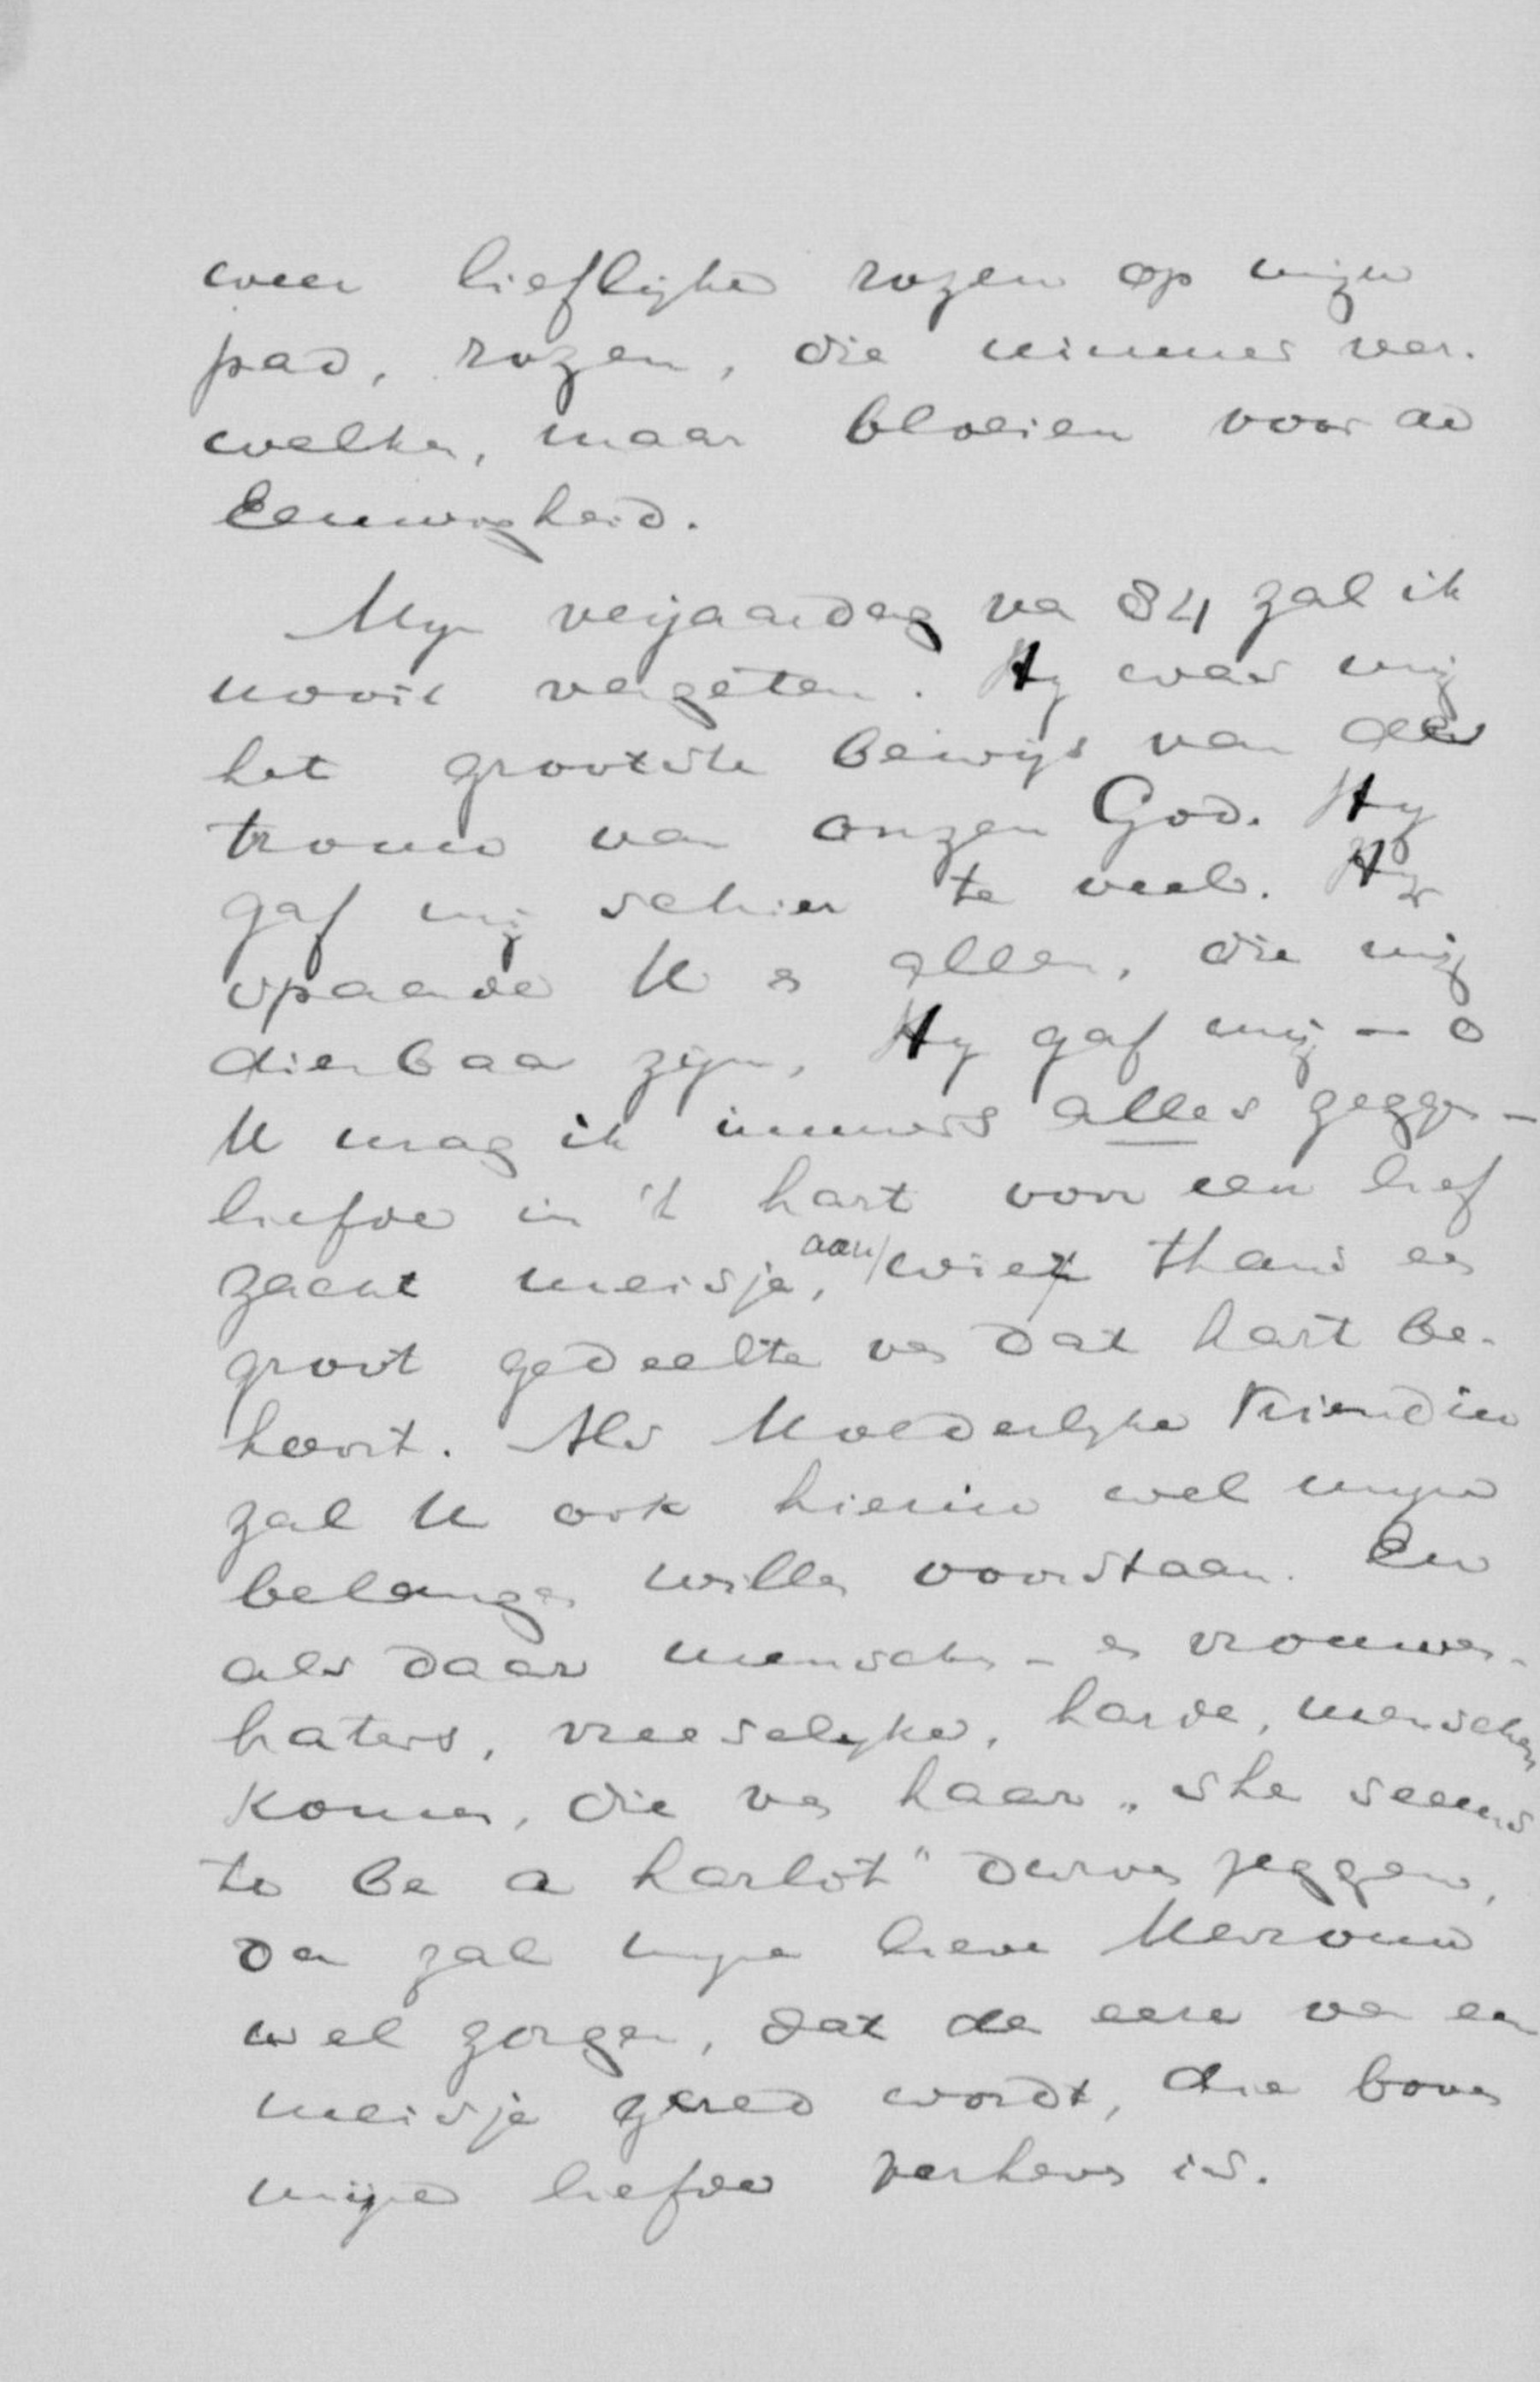 weer lieflijke rozen op mijn
pad, rozen, die nimmer ver-
welken, maar bloeien voor de
Eeuwigheid.
Mijn verjaardag van 84 zal ik
nooit vergeten. Hij was mij
het grootste bewijs van de
trouw van onzen God. Hij
gaf mij schier te veel. Hij
spaarde U en allen, die mij
dierbaar zijn, Hij gaf mij – o
U mag ik immers alles zeggen –
liefde in 't hart voor een lief
zacht meisje, aan wie thans een
groot gedeelte van dat hart be-
hoort. Als Moederlijke Vriendin
zal U ook hierin wel mijne
belangen willen voorstaan. En
als daar menschen- en vrouwen-
haters, vreeselijke, harde, menschen
komen, die van haar „she seems
to be a harlot" durven zeggen,
dan zal mijne lieve Mevrouw
wel zorgen, dat de eere van een
meisje gered wordt, die boven
mijne liefde verheven is.